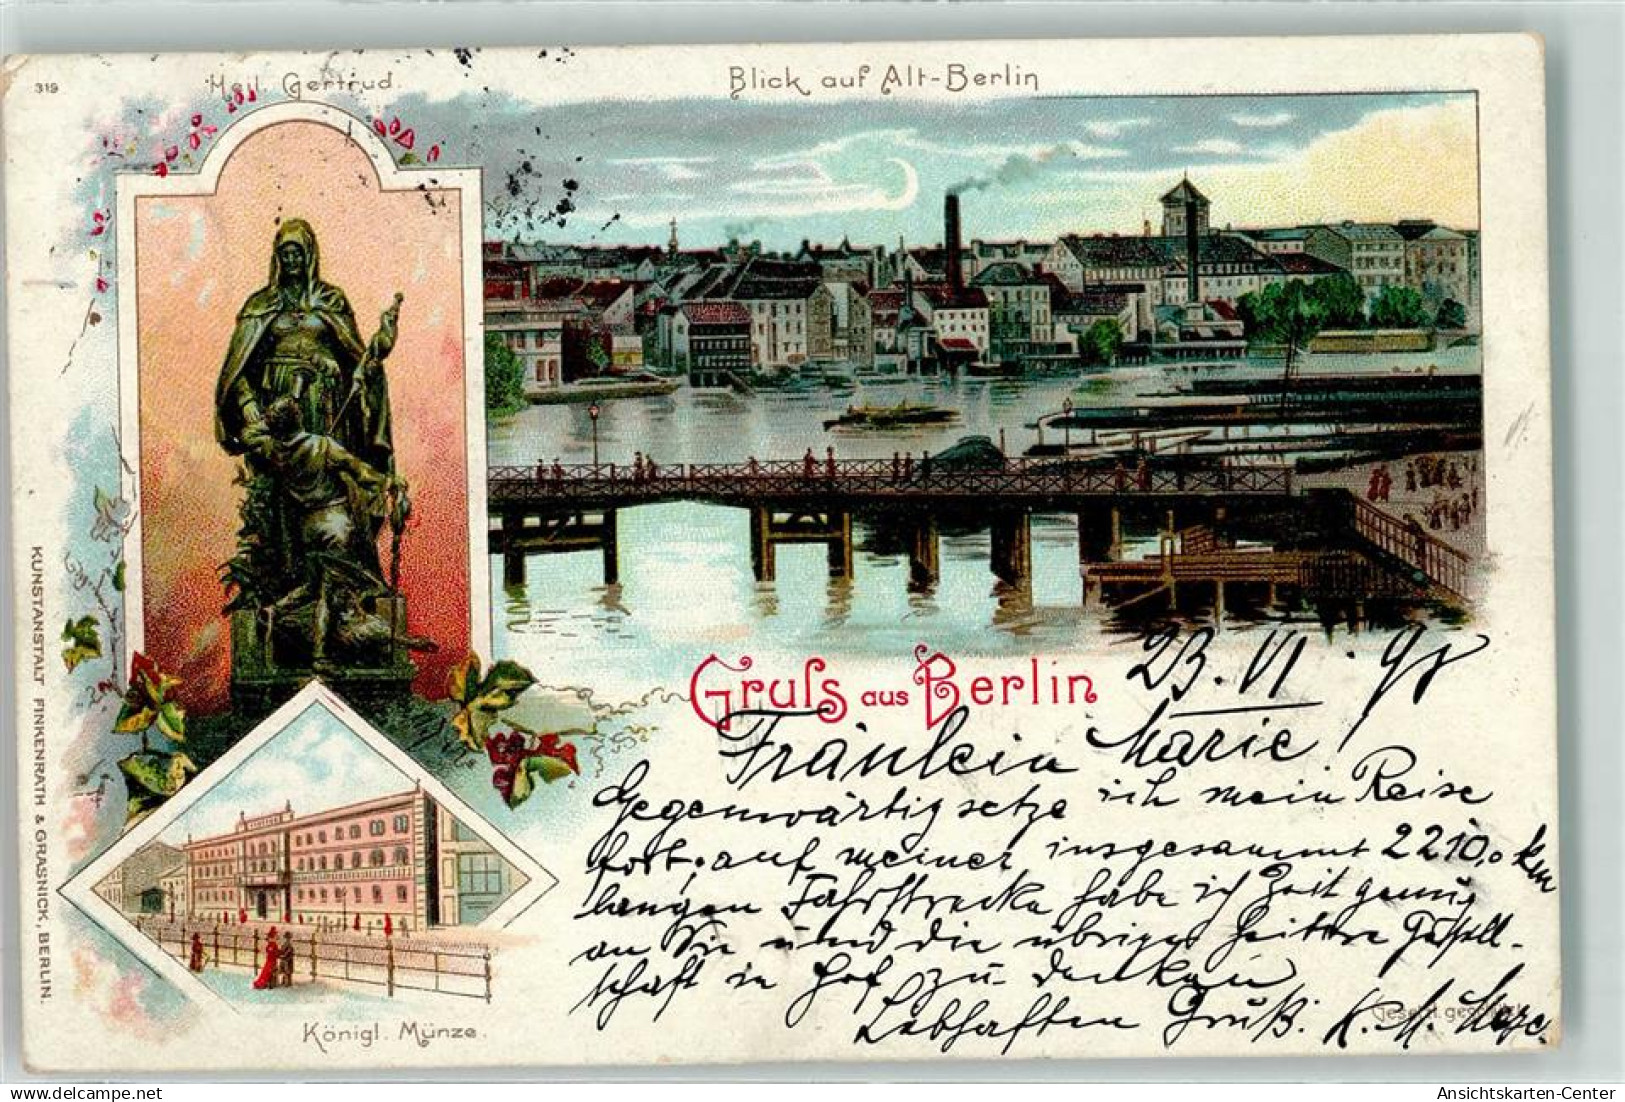 319
Heil. Gertrud.
Blick auf Alt-Berlin
KUNSTANSTALT FINKENRATH & GRASNICK, BERLIN.
Gruß aus Berlin
23. VI. 98
Fräulein Marie!
Gegenwärtig setze ich mein Reise
fort; auf meiner insgesammt 2210,0 km
langen Fahrstrecke habe ich Zeit genug
an Sie und die übrige heitere Gesell-
schaft in Hof zu denken
Lebhaften Gruß. K. M.
Gesetzl. gesch.
Königl. Münze.
Ansichtskarten-Center